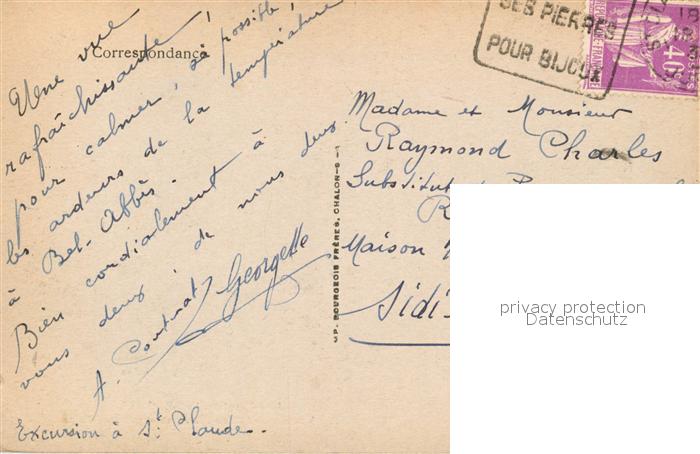 Correspondance
Une vue
rafraîchissante,
pour calmer, si possible,
les ardeurs de la température
à Bel-Abbès.
Bien cordialement à
vous deux, de nous deux
A. Georgette
Excursion à St Claude.
IMP. BOURGEOIS FRÈRES, CHALON-S-
SES PIERRES
POUR BIJOUX
40
Madame et Monsieur
Raymond Charles
Substitut
Maison
Sidi
privacy protection
Datenschutz